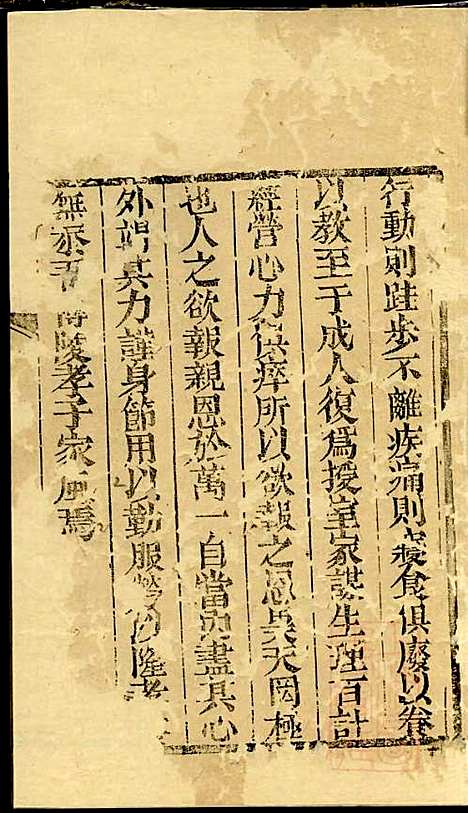 行動則跬步不離疾痛則寢食俱廢以養
以教至于成人復爲授室家謀生理百計
經營心力俱瘁所以欲報之恩昊天罔極
也人之欲報親恩於萬一自當內盡其心
外竭其力謹身節用以勤服勞以隆孝
無忝吾 陵孝子家風焉